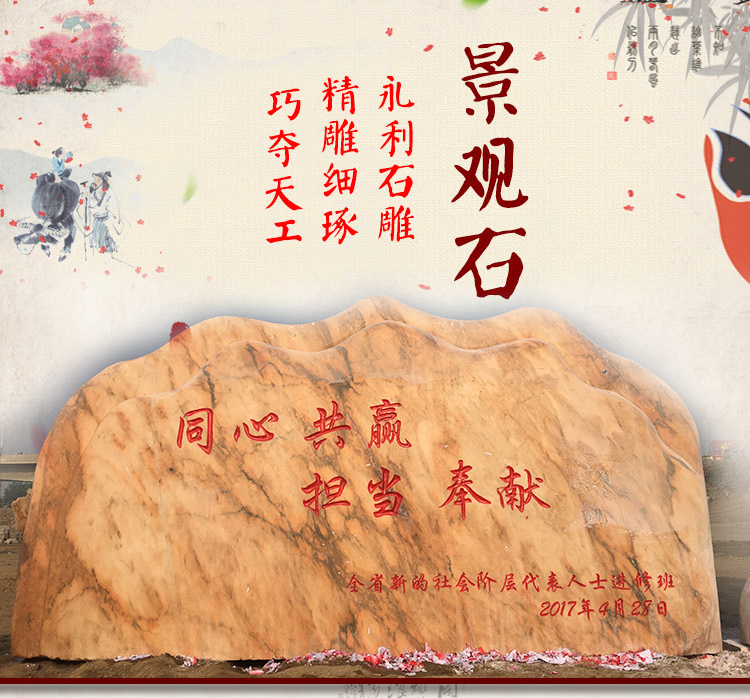 景观石
永利石雕
精雕细琢
巧夺天工
同心 共赢
担当 奉献
全省新的社会阶层代表人士进修班
2017年4月28日